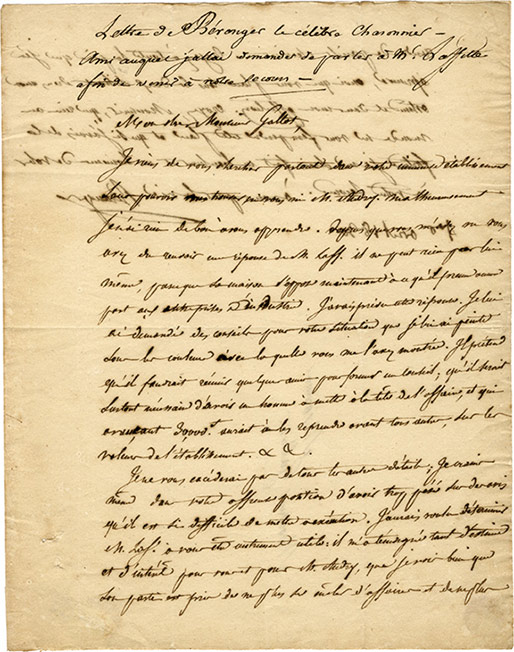 Lettre de Béranger le célèbre Chansonnier –
Ami auquel j'allai demander de parler à Mr. Laffitte
afin de venir à notre secours –
Mon cher Monsieur Gallot
Je viens de vous chercher partout dans votre immense établissement
sans pouvoir vous trouver, ni vous ni M. Audry. Malheureusement
je n'ai rien de bon à vous apprendre.
avez du recevoir une réponse de M. Laff. il ne peut rien par lui
même, parce que sa maison s'oppose maintenant à ce qu'il prenne aucune
part aux entreprises d'industrie. J'avais prévu cette réponse. Je lui
ai demandé des conseils pour votre situation que je lui ai peinte
sous les couleurs avec lesquelles vous me l'avez montrée. Il prétend
qu'il faudrait réunir quelques amis pour former un conseil; qu'il serait
surtout nécessaire d'avoir un homme à mettre à la tête de l'affaire, et qui
avançant 30000f. aurait à les reprendre avant tous autres, sur les
valeurs de l'établissement. &c &c.
Je ne vous excéderai pas de tous les autres détails; Je crains
même dans votre affreuse position d'avoir trop pesé sur des avis
qu'il est si difficile de mettre à exécution. J'aurais voulu déterminer
M. Laff. à vous être autrement utile: il m'a témoigné tant d'estime
et d'intérêt pour vous et pour M. Audry, que je vois bien que
son parti est pris de ne plus se mêler d'affaires et de ne plus